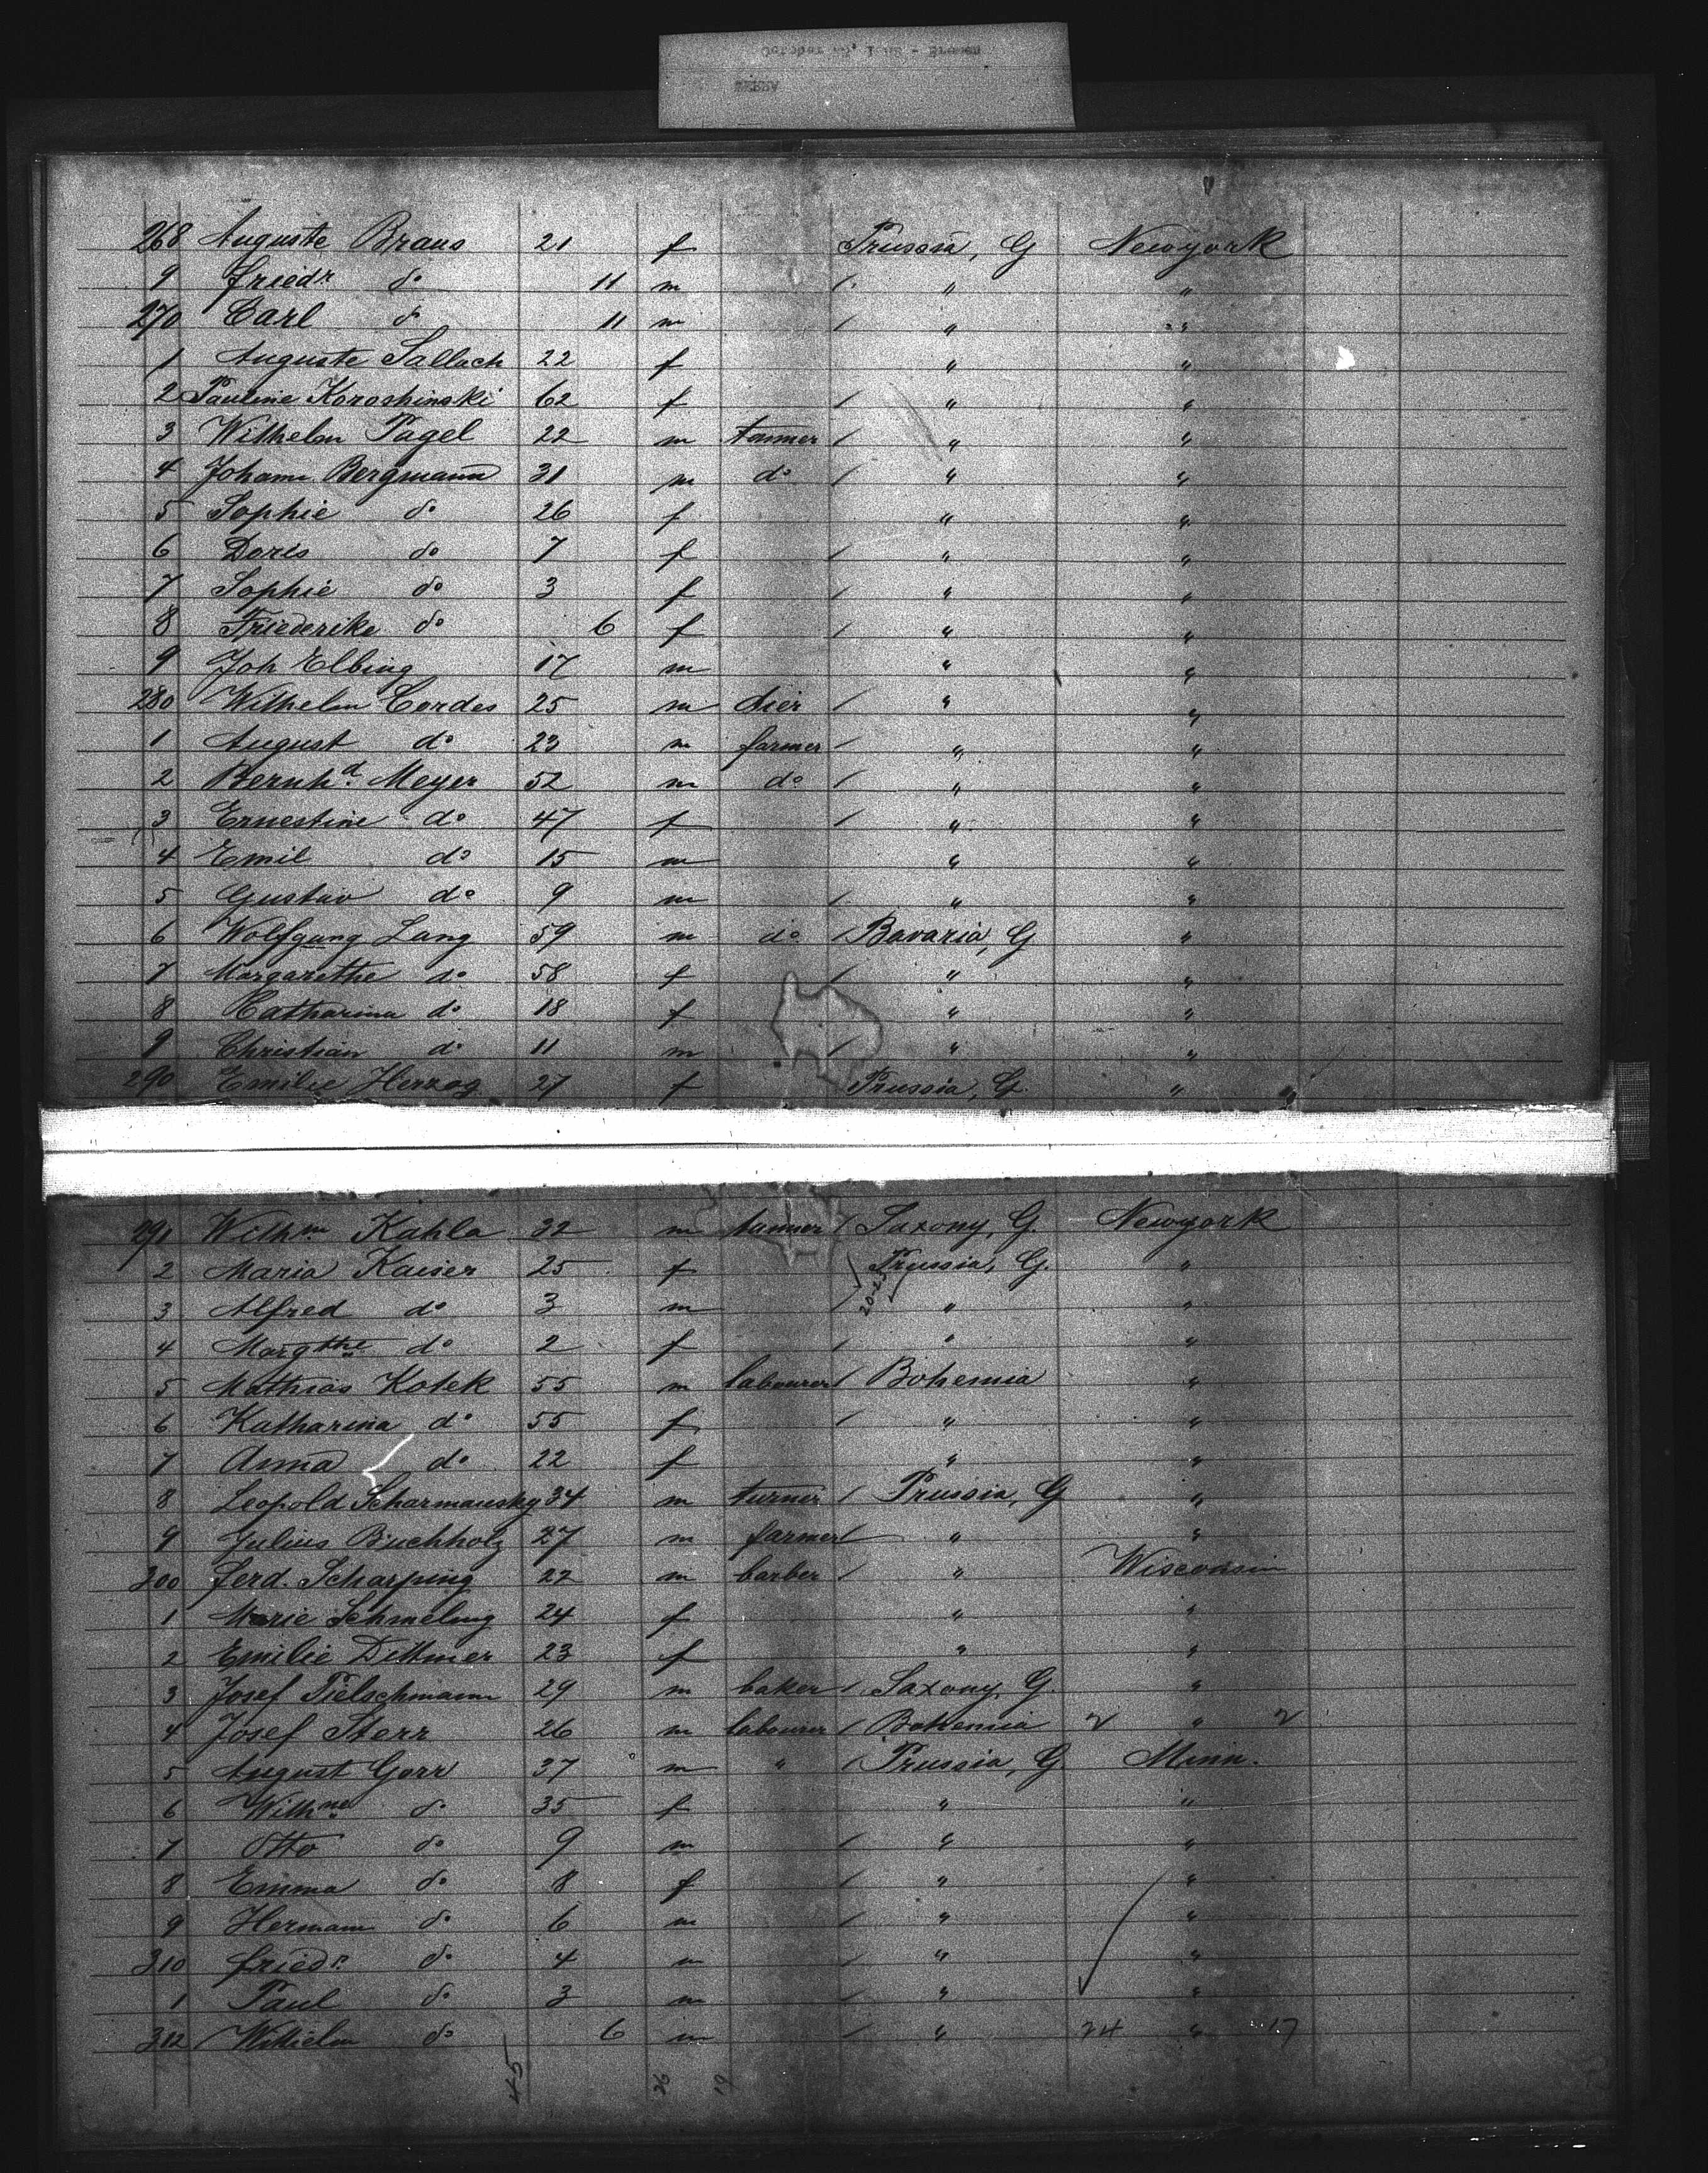 268 Auguste Braus 21 f Prussia, G Newyork
9 Friedr. do 11 m / " "
270 Carl do 11 m / " "
1 Auguste Sallach 22 f " "
2 Pauline Koroshinski 62 f / " "
3 Wilhelm Pagel 22 m tanner / " "
4 Johann Bergmann 31 m do / " "
5 Sophie do 26 f " "
6 Doris do 7 f / " "
7 Sophie do 3 f / " "
8 Friederike do 6 f / " "
9 Joh Elbing 17 m " "
280 Wilhelm Cordes 25 m dier / " "
1 August do 23 m farmer / " "
2 Bernhd. Meyer 52 m do / " "
3 Ernestine do 47 f / " "
4 Emil do 15 m " "
5 Gustav do 9 m / " "
6 Wolfgang Lang 59 m do / Bavaria, G "
7 Margarethe do 58 f / " "
8 Catharina do 18 f " "
9 Christian do 11 m / " "
290 Emilie Herzog 27 f Prussia, G. " "
291 Wilhm Kahla 32 m tanner / Saxony, G. Newyork
2 Maria Kaiser 25 f / Prussia, G. "
20-25
3 Alfred do 3 m / " "
4 Margthe do 2 f / " "
5 Mathias Kotek 55 m labourer / Bohemia "
6 Katharina do 55 f / " "
7 Anna do 22 f " "
8 Leopold Scharmansky 34 m turner / Prussia, G "
9 Julius Buchholz 27 m farmer / " "
300 Ferd. Scharping 22 m barber / " Wisconsin
1 Marie Schmeling 24 f " "
2 Emilie Dittmer 23 f " "
3 Josef Pielschmann 29 m baker / Saxony, G. "
4 Josef Sterr 26 m labourer / Bohemia 2 " 2
5 August Gorr 37 m " / Prussia, G Minn.
6 Wilhne do 35 f " "
7 Otto do 9 m / " "
8 Emma do 8 f / " "
9 Hermann do 6 m / " "
310 Friedr. do 4 m / " "
1 Paul do 3 m / " "
312 Wilhelm do 6 m / " 24 " 17
45 26 19